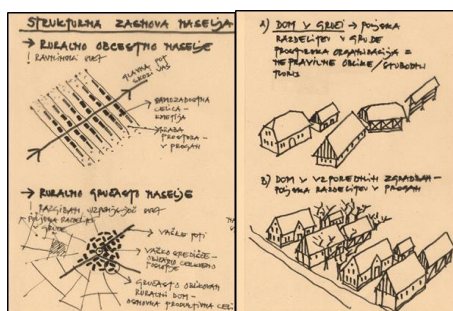 STRUKTURNA ZASNOVA NASELJA
→ RURALNO OBCESTNO NASELJE
! RAVNINSKI SVET
GLAVNA POT
SKOZI VAS
SAMOZADOSTNA
CELICA -
KMETIJA
RABA
PROSTORA -
V PROGAH
→ RURALNO GRUČASTO NASELJE
! RAZGIBAN, VZPENJAJOČ SVET
POLJSKA RAZDELITEV
V GRUDE
VAŠKE POTI
VAŠKO SREDIŠČE -
CERKVENO
POSLOPJE
GRUČASTO OBLIKOVAN
RURALNI DOM -
OSNOVNA PRODUKTIVNA CELI
A) DOM V GRUČI → POLJSKA
RAZDELITEV V GRUDE
PROSTORSKA ORGANIZACIJA =
NEPRAVILNE OBLIKE / SVOBODNI
B) DOM V VZPOREDNIH ZGRADBAH -
POLJSKA RAZDELITEV V PROGAH